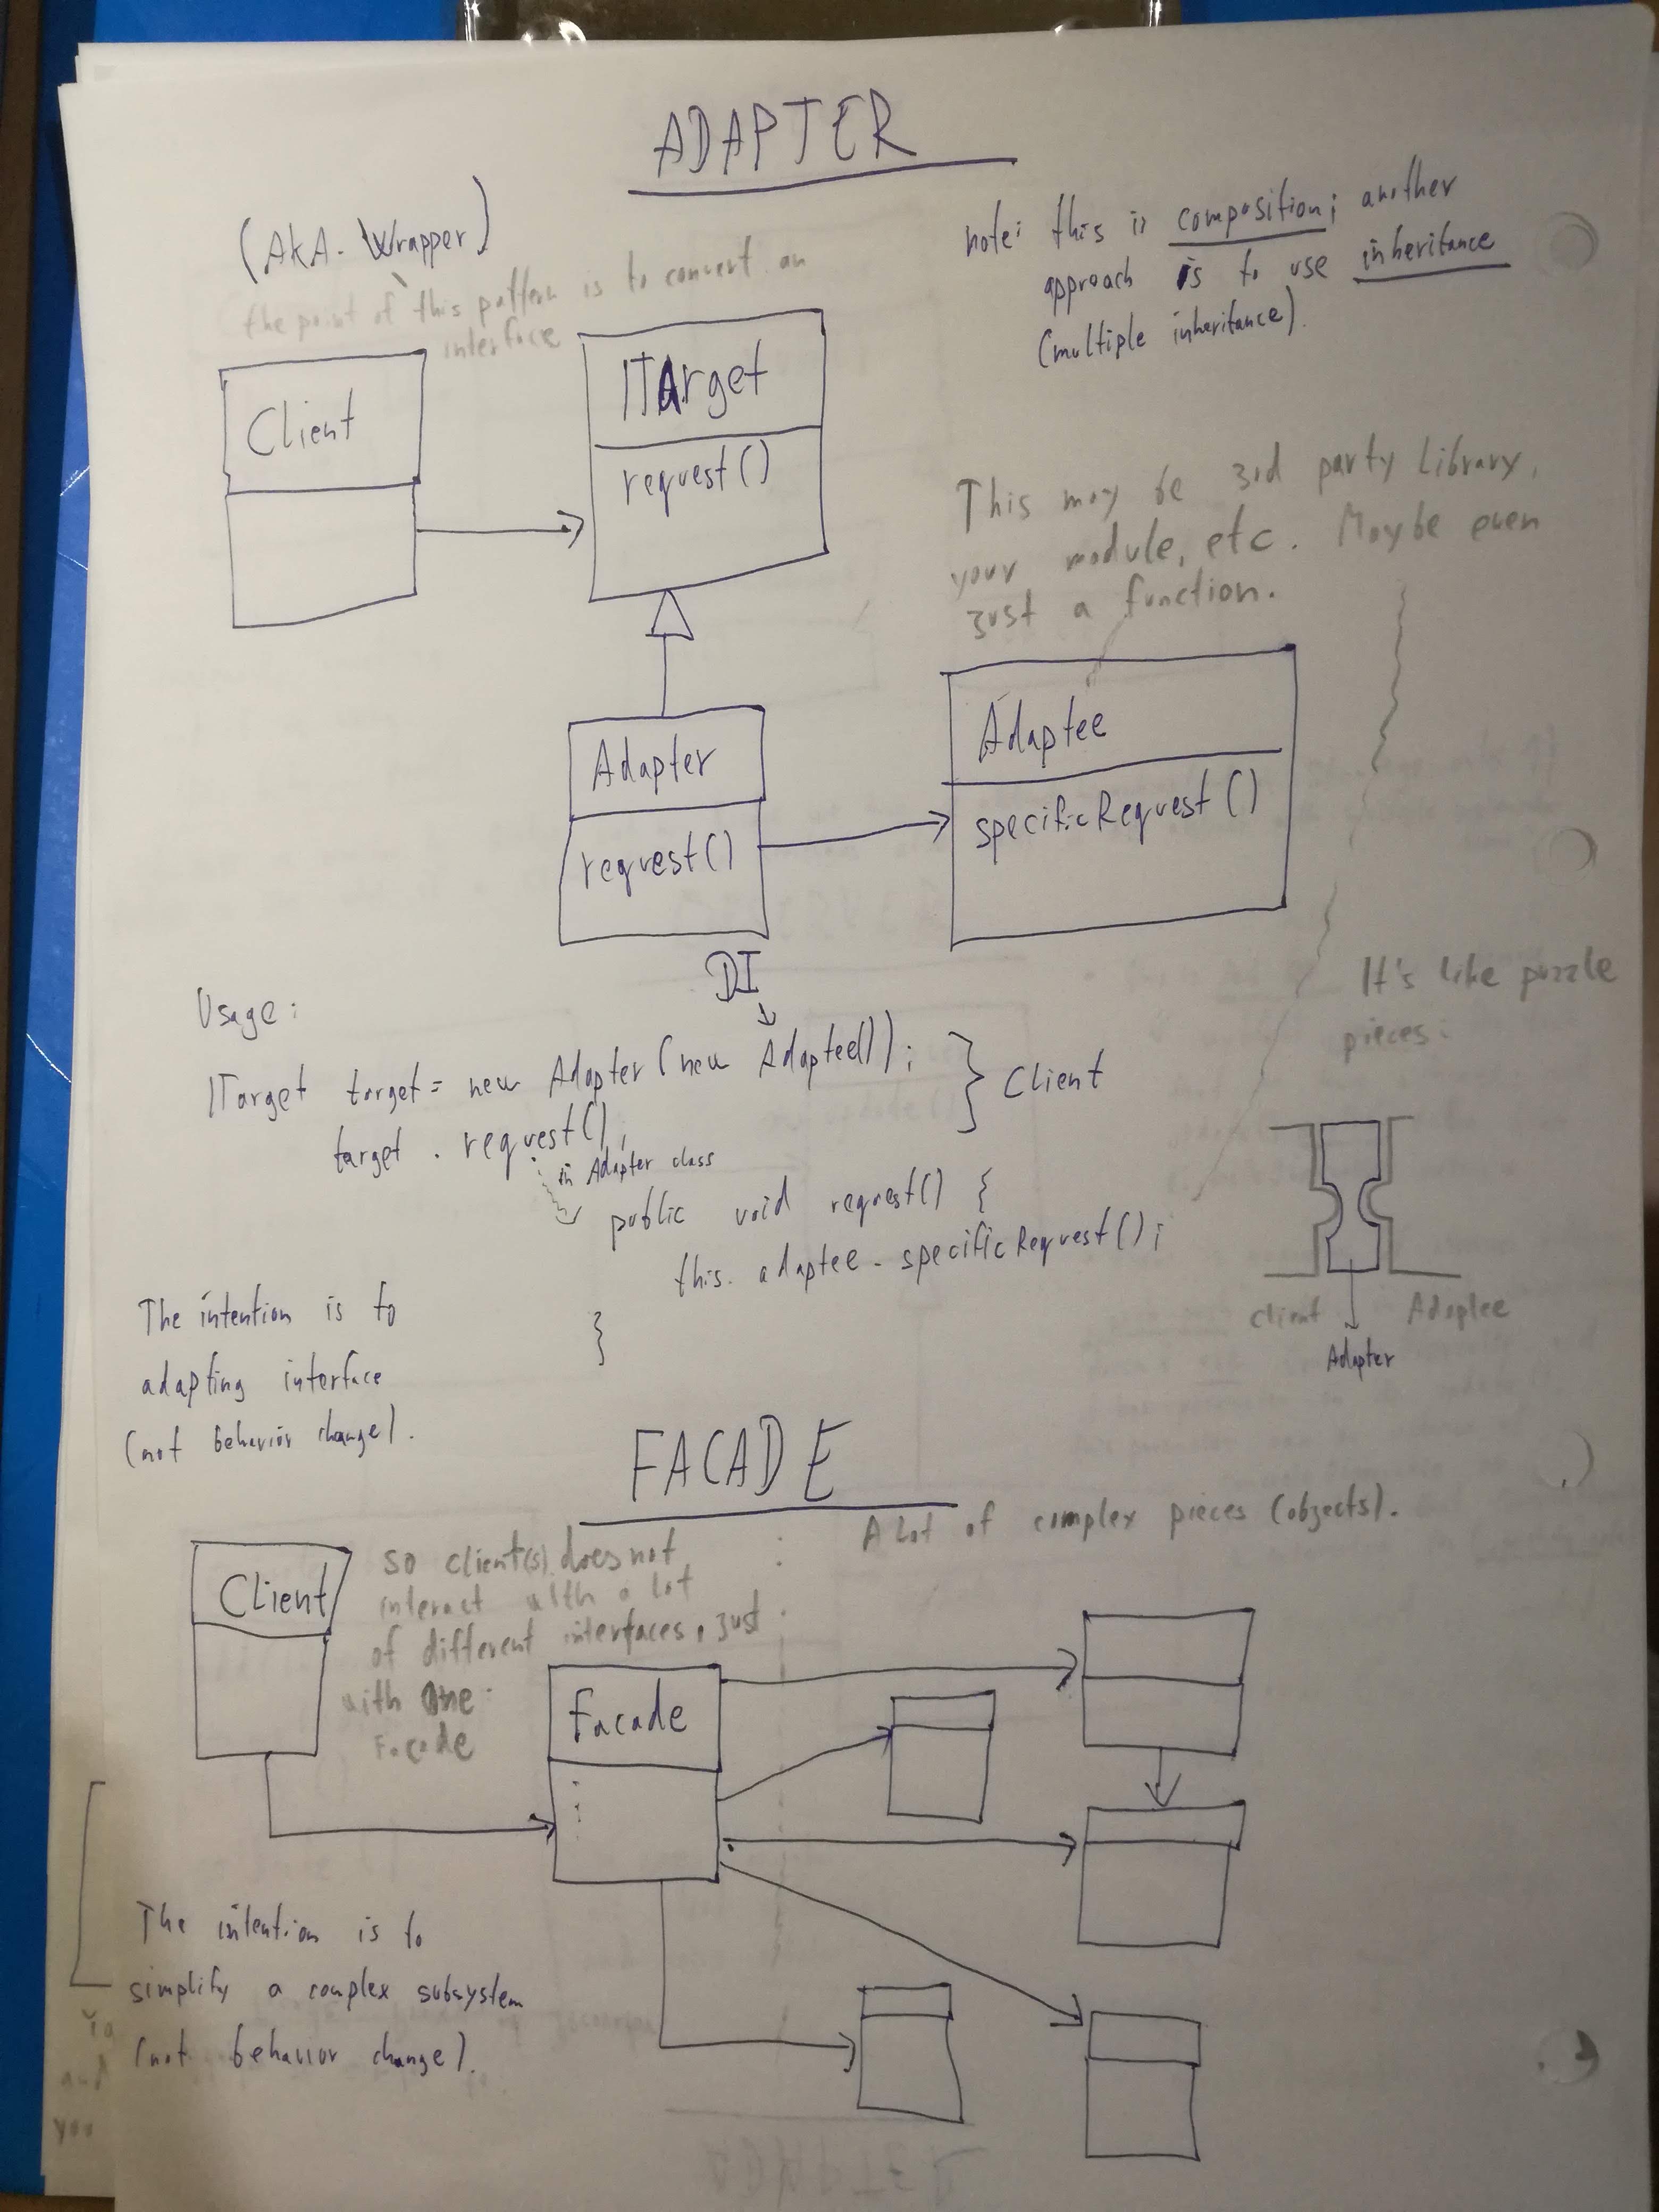 ADAPTER
(AkA. Wrapper)
the point of this pattern is to convert an
interface
note: this is composition; another
approach is to use inheritance
(multiple inheritance).
Client
ITArget
request()
This may be 3rd party library,
your module, etc. Maybe even
just a function.
Adapter
request()
Adaptee
specificRequest()
DI
It's like puzzle
pieces:
Usage:
ITarget target = new Adapter(new Adaptee());
target.request();
} Client
in Adapter class
public void request() {
this.adaptee.specificRequest();
}
client
Adaptee
Adapter
The intention is to
adapting interface
(not behavior change).
FACADE
A lot of complex pieces (objects).
Client
so client(s) does not
interact with a lot
of different interfaces, just
with One
Facade
Facade
The intention is to
simplify a complex subsystem
(not behavior change).